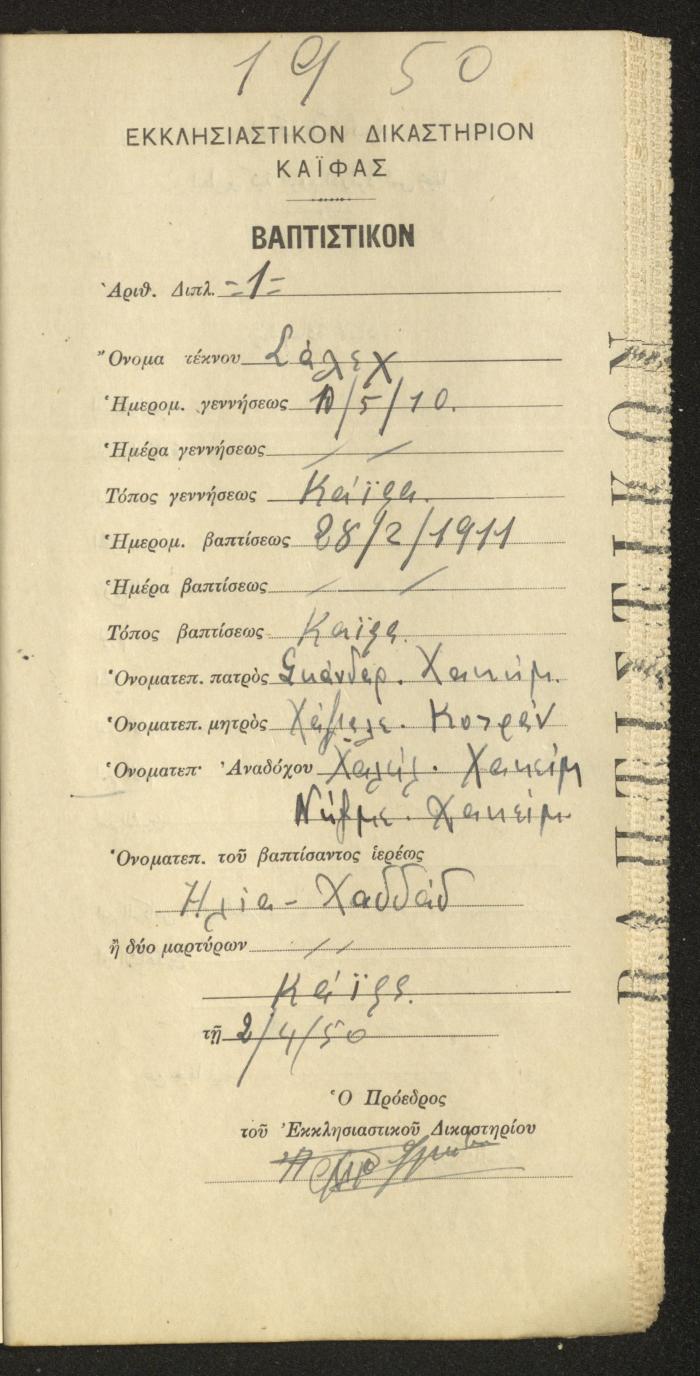 1950
ΕΚΚΛΗΣΙΑΣΤΙΚΟΝ ΔΙΚΑΣΤΗΡΙΟΝ
ΚΑΪΦΑΣ
ΒΑΠΤΙΣΤΙΚΟΝ
Ἀριθ. Διπλ. =1=
Ὄνομα τέκνου Σάλεχ
Ἡμερομ. γεννήσεως 10/5/10.
Ἡμέρα γεννήσεως
Τόπος γεννήσεως Κάϊφα.
Ἡμερομ. βαπτίσεως 28/2/1911
Ἡμέρα βαπτίσεως
Τόπος βαπτίσεως Καϊφα.
Ὀνοματεπ. πατρὸς Σκάνδερ. Χακήμ.
Ὀνοματεπ. μητρὸς Κοτράν
Ὀνοματεπ. Ἀναδόχου Χαλίλ. Χακείμ
Χακείμ.
Ὀνοματεπ. τοῦ βαπτίσαντος ἱερέως
Ηλία - Χαδδάδ
ἢ δύο μαρτύρων
Κάϊφα.
τῇ 2/4/50
Ὁ Πρόεδρος
τοῦ Ἐκκλησιαστικοῦ Δικαστηρίου
ΒΑΠΤΙΣΤΙΚΟΝ